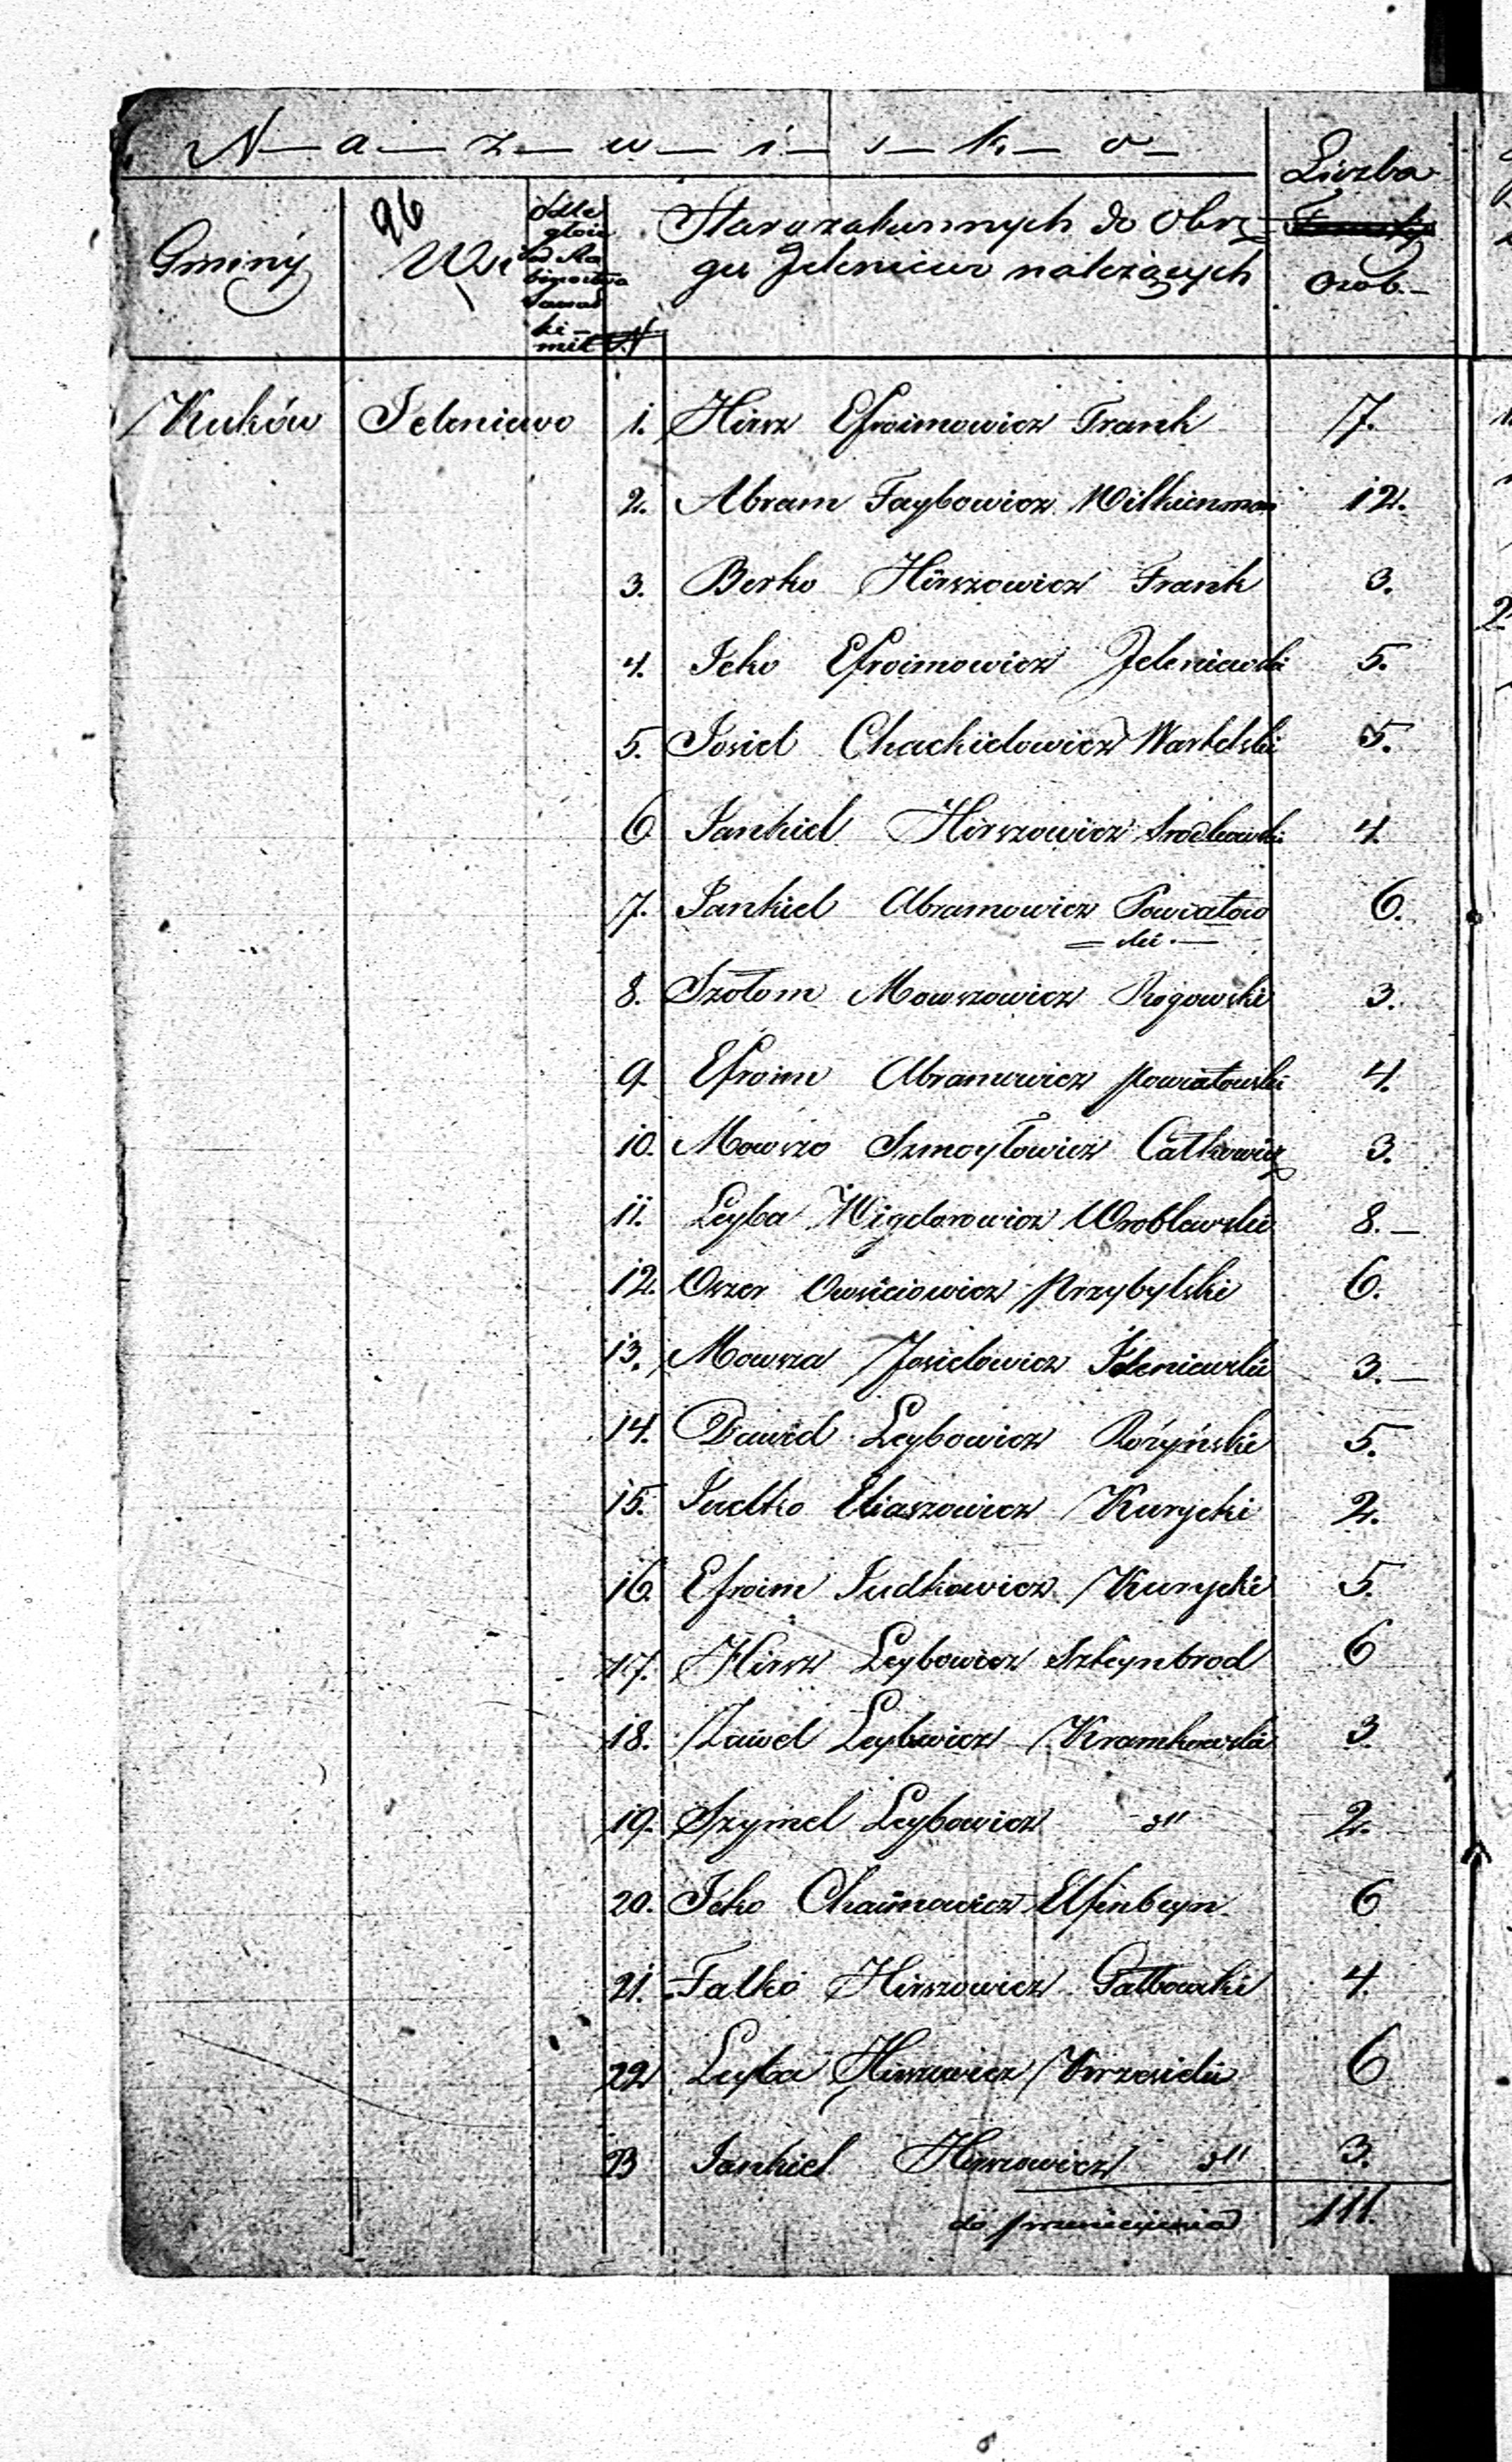 N a z w i s k o
Liczba
osób
Gminy
96
Wsi
Odle
głość
od Ra
binostwa
Suwal
ki
mil
N
Starozakonnych do Okrę
gu Jeleniewo należących
Kuków Jeleniewo 1. Hirsz Efroimowicz Frank 7.
2. Abram Faybowicz Wilkienman 12.
3. Berko Hirszowicz Frank 3.
4. Icko Efroimowicz Jeleniewski 5.
5. Josiel Chackielowicz Wartelski 5.
6 Jankiel Hirszowicz 4.
7. Jankiel Abramowicz Powiatow 6.
= ski. —
8. Szołom Mowszowicz Rogowski 3.
9. Efroim Abramowicz Powiatowski 4.
10. Mowszo Szmoyłowicz Calkowicz 3.
11. Leyba Wigdorowicz Wroblewski 8. —
12. Oszer Przybylski 6.
13. Mowsza Josielowicz Jeleniewski 3. —
14. Dawid Leybowicz Rożyński 5.
15. Judko Eliaszowicz Kurycki 2.
16. Efroim Judkowicz Kurycki 5.
17. Hirsz Leybowicz Szteynbrod 6
18. Zawel Leybowicz Kramkowski 3
19. Szymel Leybowicz " 2.
20. Icko Chaimowicz Elfinbeyn 6
21. Falko Hirszowicz 4.
22 Leyba Hirszowicz 6
23 Jankiel Hirszowicz " 3.
do przeniesienia 111.